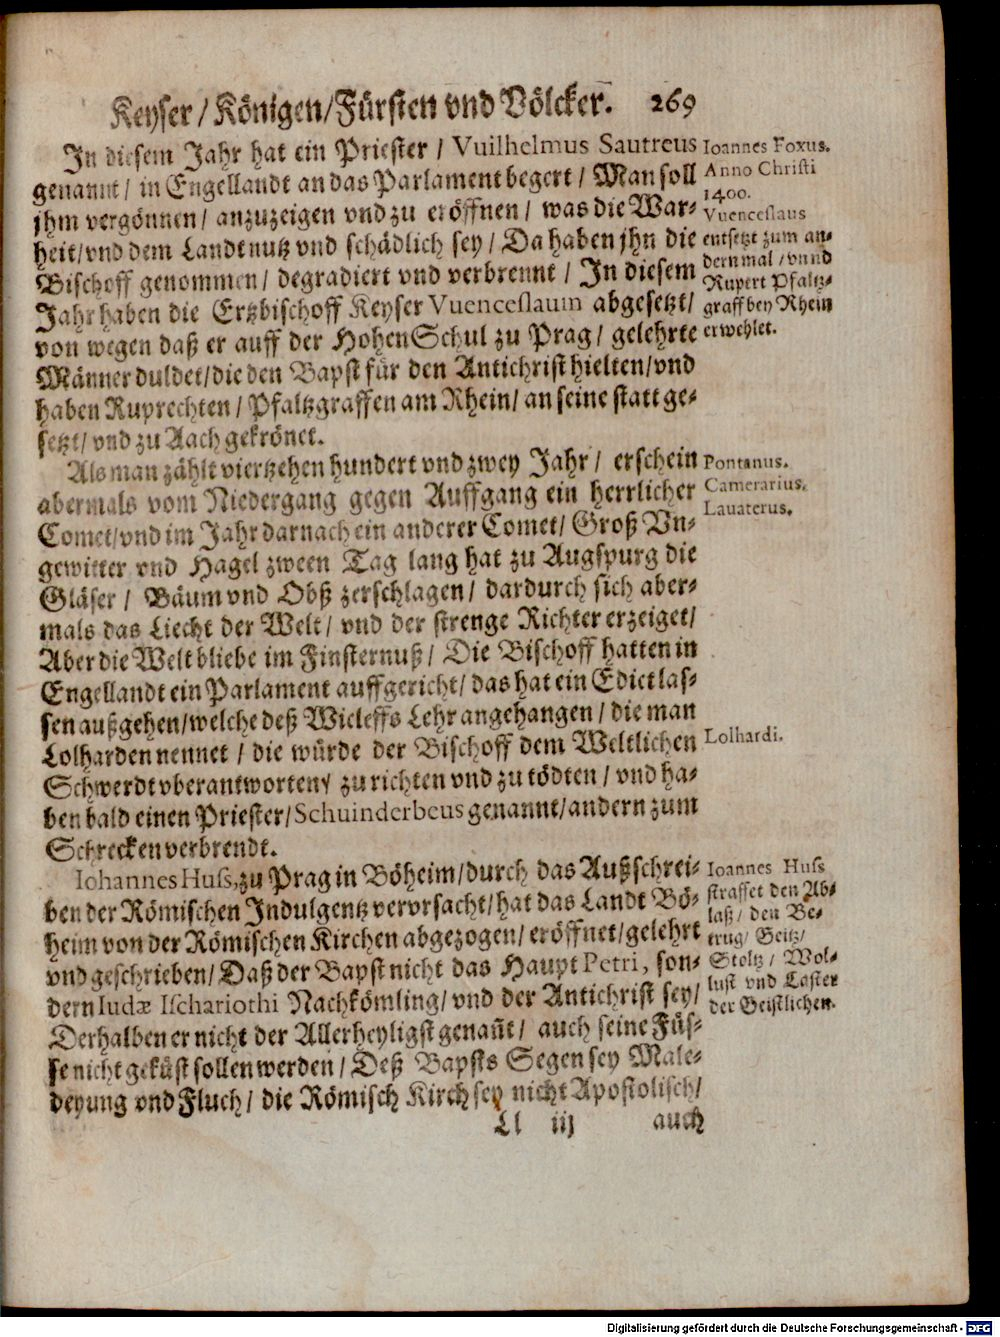 Keyser / Königen / Fürsten vnd Völcker. 269
In diesem Jahr hat ein Priester / Vuilhelmus Sautreus
genannt / in Engellandt an das Parlament begert / Man soll
jhm vergönnen / anzuzeigen vnd zu eröffnen / was die War-
heit / vnd dem Landt nutz vnd schädlich sey / Da haben jhn die
Bischoff genommen / degradiert vnd verbrennt / In diesem
Jahr haben die Ertzbischoff Keyser Vuenceslaum abgesetzt /
von wegen daß er auff der Hohen Schul zu Prag / gelehrte
Männer duldet / die den Bapst für den Antichrist hielten / vnd
haben Ruprechten / Pfaltzgraffen am Rhein / an seine statt ge-
setzt / vnd zu Aach gekrönet.
Ioannes Foxus.
Anno Christi
1400.
Vuenceslaus
entsetzt zum an-
dern mal / vnnd
Rupert Pfaltz-
graff bey Rhein
erwehlet.
Als man zählt viertzehen hundert vnd zwey Jahr / erschein
abermals vom Niedergang gegen Auffgang ein herrlicher
Comet / vnd im Jahr darnach ein anderer Comet / Groß Vn-
gewitter vnd Hagel zween Tag lang hat zu Augspurg die
Gläser / Bäum vnd Obß zerschlagen / dardurch sich aber-
mals das Liecht der Welt / vnd der strenge Richter erzeiget /
Aber die Welt bliebe im Finsternuß / Die Bischoff hatten in
Engellandt ein Parlament auffgericht / das hat ein Edict las-
sen außgehen / welche deß Wicleffs Lehr angehangen / die man
Lolharden nennet / die würde der Bischoff dem Weltlichen
Schwerdt vberantworten / zu richten vnd zu tödten / vnd ha-
ben bald einen Priester / Schuinderbeus genannt / andern zum
Schrecken verbrendt.
Pontanus.
Camerarius.
Lauaterus.
Lolhardi.
Iohannes Huss, zu Prag in Böheim / durch das Außschrei-
ben der Römischen Indulgentz vervrsacht / hat das Landt Bö-
heim von der Römischen Kirchen abgezogen / eröffnet / gelehrt
vnd geschrieben / Daß der Bapst nicht das Haupt Petri, son-
dern Iudæ Ischariothi Nachkömling / vnd der Antichrist sey /
Derhalben er nicht der Allerheyligst genañt / auch seine Füs-
se nicht geküst sollen werden / Deß Bapsts Segen sey Male-
deyung vnd Fluch / die Römisch Kirch sey nicht Apostolisch /
Ioannes Huss
straffet den Ab-
laß / den Be-
trug / Geitz /
Stoltz / Wol-
lust vnd Laster
der Geistlichen.
Ll iij auch
Digitalisierung gefördert durch die Deutsche Forschungsgemeinschaft - DFG